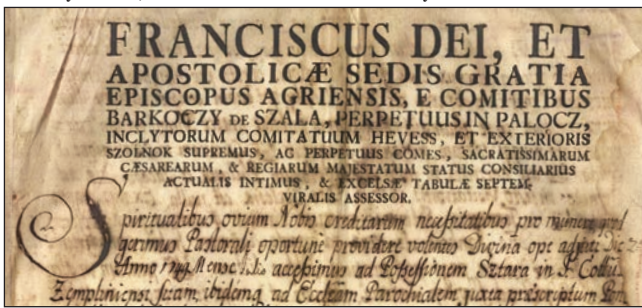 FRANCISCUS DEI, ET
APOSTOLICÆ SEDIS GRATIA
EPISCOPUS AGRIENSIS, E COMITIBUS
BARKOCZY DE SZALA, PERPETUUS IN PALOCZ,
INCLYTORUM COMITATUUM HEVESS, ET EXTERIORIS
SZOLNOK SUPREMUS, AC PERPETUUS COMES, SACRATISSIMARUM
CÆSAREARUM, & REGIARUM MAJESTATUM STATUS CONSILIARIUS
ACTUALIS INTIMUS, & EXCELSÆ TABULÆ SEPTEM-
VIRALIS ASSESSOR.
Spiritualibus ovium Nobis creditarum necessitatibus pro munere
Pastorali oportune providere volentes Divina ope adjuti
Anno Mense accessimus ad Possessionem Sztara in
Zempliniensi sitam, ibidemq ad Ecclam Parochialem juxta præscriptum